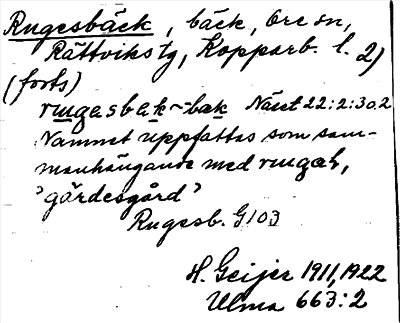 Rugesbäck, bäck, Ore sn,
Rättviks tg, Kopparb. l. 2)
(forts)
rugasbek~-bæk Näset 22:2:30,2
Namnet uppfattas som sam-
manhängande med
'gärdesgård'
Rugesb. G103
H. Geijer 1911, 1922
Ulma 663:2